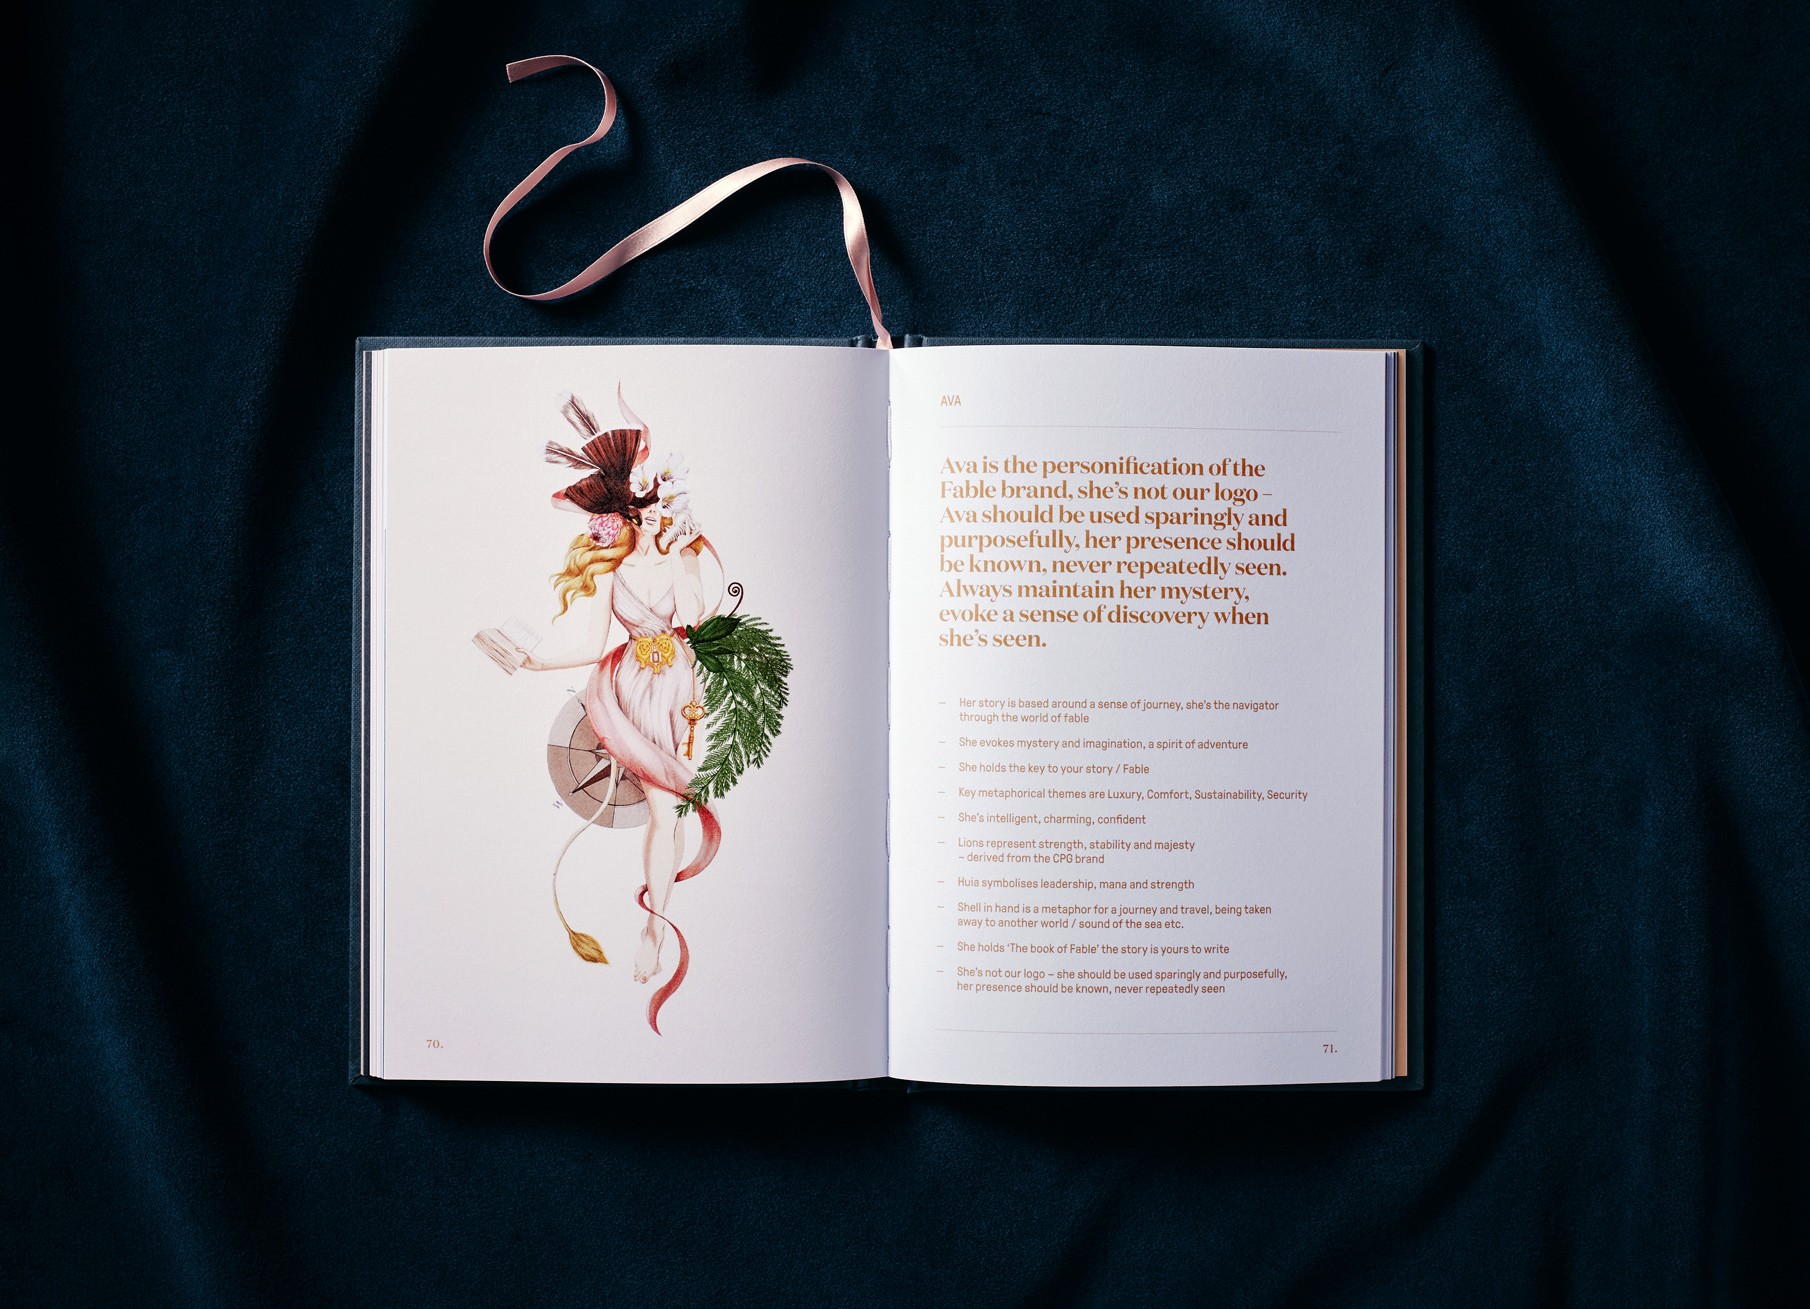 AVA
Ava is the personification of the
Fable brand, she's not our logo –
Ava should be used sparingly and
purposefully, her presence should
be known, never repeatedly seen.
Always maintain her mystery,
evoke a sense of discovery when
she's seen.
– Her story is based around a sense of journey, she's the navigator
through the world of fable
– She evokes mystery and imagination, a spirit of adventure
– She holds the key to your story / Fable
– Key metaphorical themes are Luxury, Comfort, Sustainability, Security
– She's intelligent, charming, confident
– Lions represent strength, stability and majesty
– derived from the CPG brand
– Huia symbolises leadership, mana and strength
– Shell in hand is a metaphor for a journey and travel, being taken
away to another world / sound of the sea etc.
– She holds ‘The book of Fable’ the story is yours to write
– She's not our logo – she should be used sparingly and purposefully,
her presence should be known, never repeatedly seen
70.
71.
W